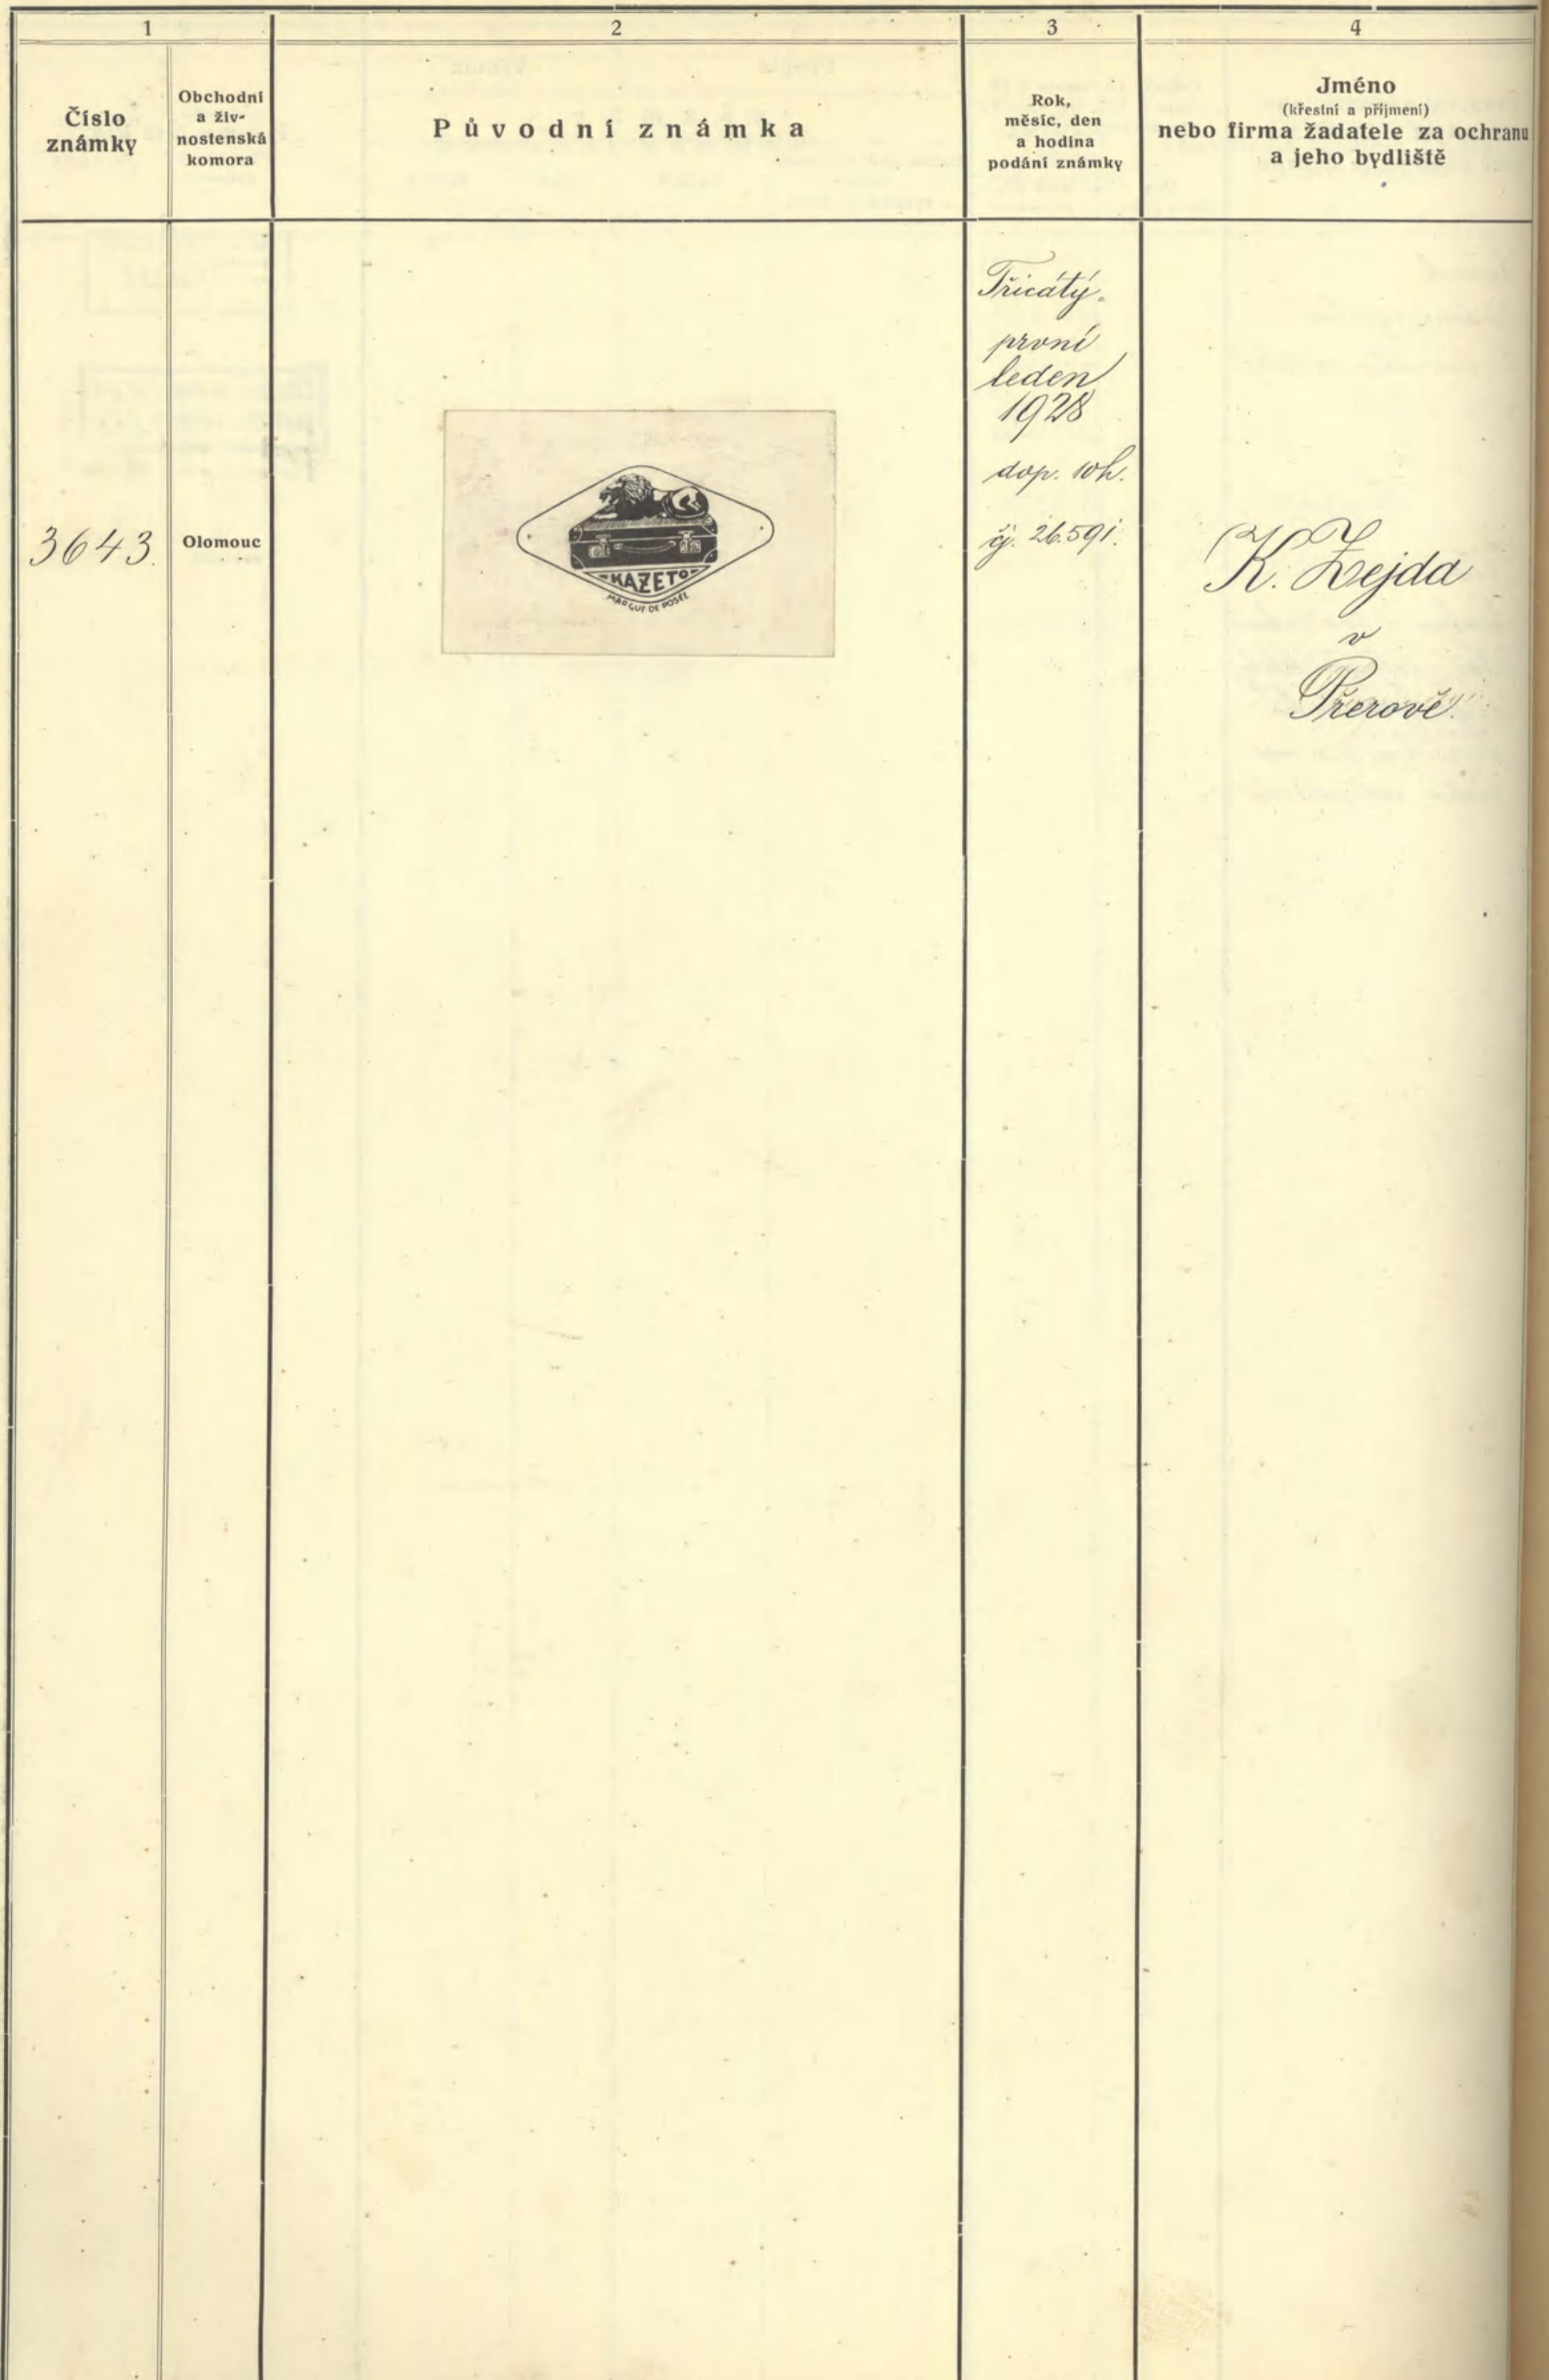 1
2
3
4
Číslo
známky
Obchodní
a živ-
nostenská
komora
Původní známka
Rok,
měsíc, den
a hodina
podání známky
Jméno
(křestní a příjmení)
nebo firma žadatele za ochranu
a jeho bydliště
3643.
Olomouc
KAZETO
MARQUE DE POSÉE
Třicátý-
první
leden
1928
dop. 10h.
čj. 26.591.
K. Zejda
v
Přerově.